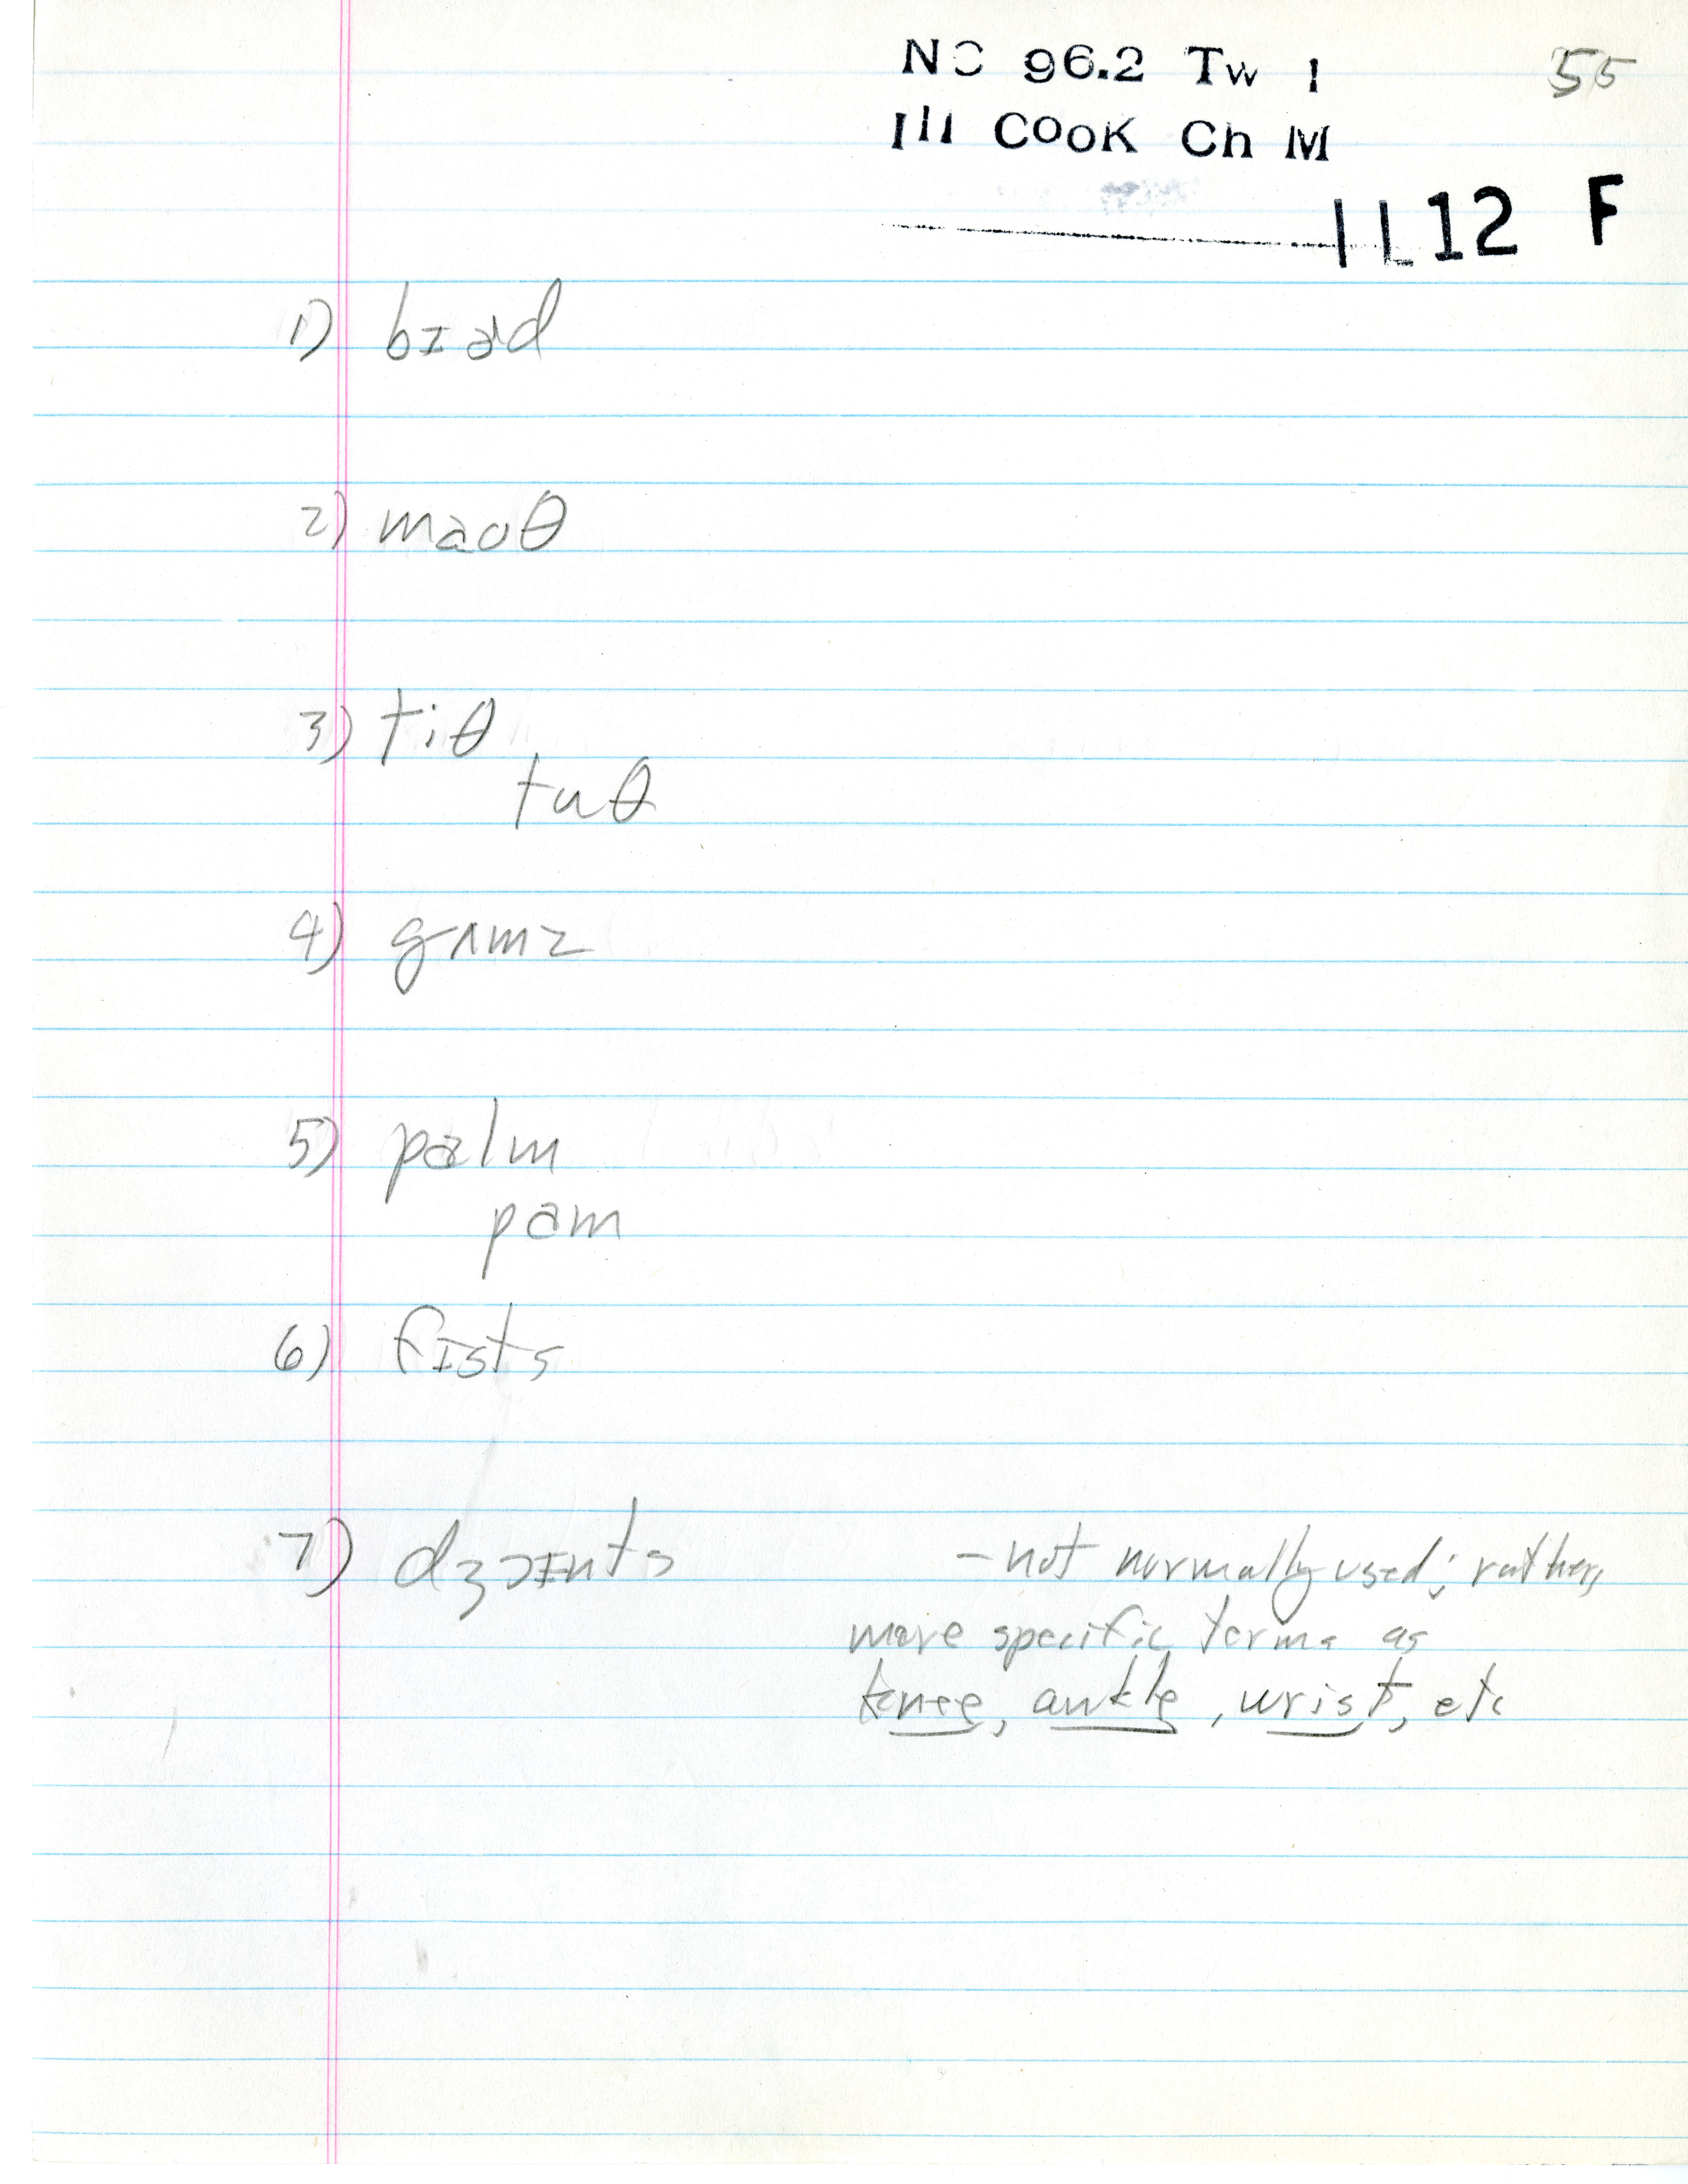 NC 96.2 Tw 1
55
Ill Cook Ch M
IL12 F
1) bɪəd
2) maoθ
3) tiθ
tuθ
4) gʌmz
5) palm
pam
6) fɪsts
7) dʒɔɪnts - not normally used; rather,
more specific terms as
knee, ankle, wrist, etc